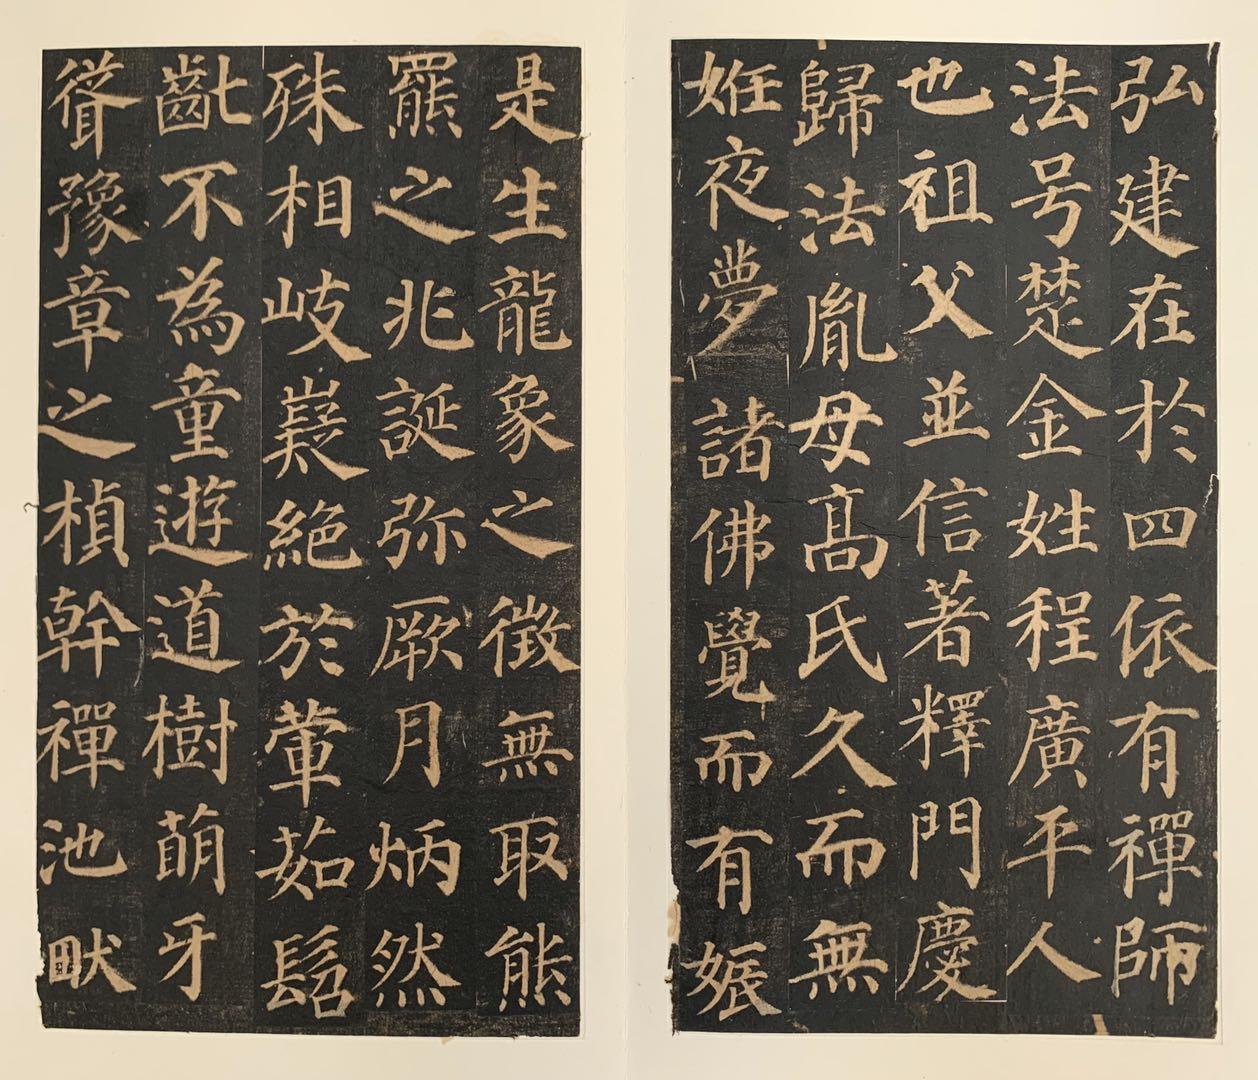 弘建在於四依有禪師
法号楚金姓程廣平人
也祖父並信著釋門慶
歸法胤母高氏久而無
姙夜夢諸佛覺而有娠
是生龍象之徵無取熊
羆之兆誕弥厥月炳然
殊相岐嶷絕於葷茹髫
齓不為童遊道樹萌牙
聳豫章之楨幹禪池畎